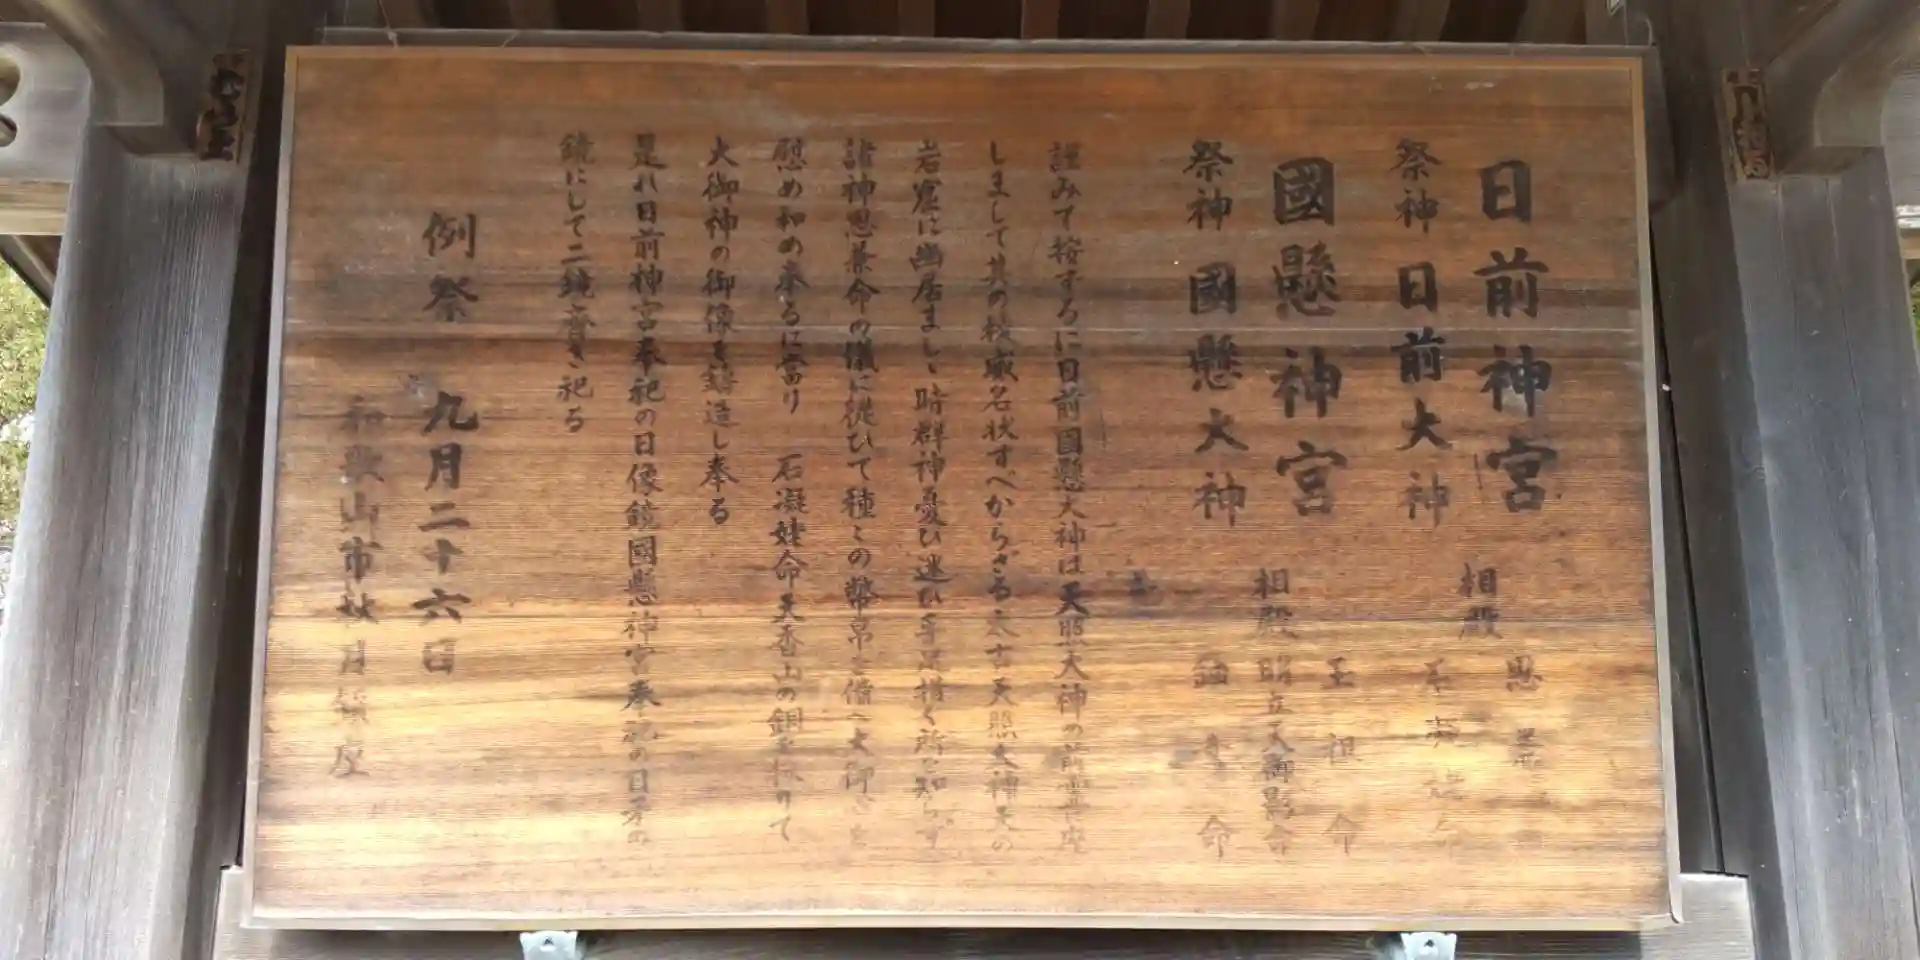 日前神宮
祭神 日前大神
相殿 思兼命
石凝姥命
國懸神宮
祭神 國懸大神
相殿 玉祖命
明立天御影命
鈿女命
謹みて按ずるに日前國懸大神は天照大神の前霊に座
しまして其の稜威名状すべからざる太古天照大神天の
岩窟に幽居ましゝ時群神憂ひ迷ひ手足措く所を知らず
諸神思兼命の議に從ひて種々の幣帛を備へ大御心を
慰め和め奉るに當り 石凝姥命天香山の銅を採りて
大御神の御像を鋳造し奉る
是れ日前神宮奉祀の日像鏡國懸神宮奉祀の日矛の
鏡にして二鏡齋き祀る
例祭 九月二十六日
和歌山市秋月鎮座